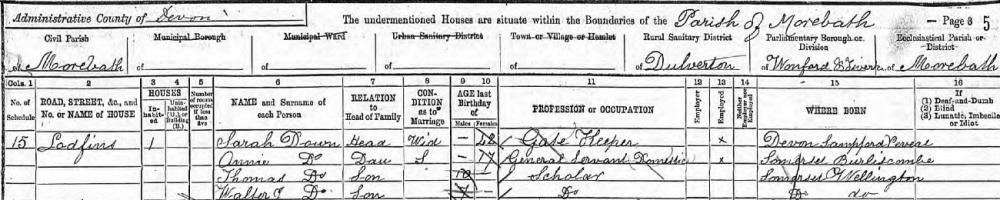 Administrative County of Devon The undermentioned Houses are situate within the Boundaries of the Parish of Morebath Page 8 5
Civil Parish Municipal Borough Municipal Ward Urban Sanitary District Town or Village or Hamlet Rural Sanitary District Parliamentary Borough or Division Ecclesiastical Parish or District
of Morebath of of of of of Dulverton of Wonford & of Morebath
Cols. 1 2 3 4 5 6 7 8 9 10 11 12 13 14 15 16
No. of Schedule ROAD, STREET, &c., and No. or NAME of HOUSE HOUSES Inhabited Uninhabited (U.), or Building (B.) Number of rooms occupied if less than five NAME and Surname of each Person RELATION to Head of Family CONDITION as to Marriage AGE last Birthday of Males Females PROFESSION or OCCUPATION Employer Employed Neither Employer nor Employed WHERE BORN If (1) Deaf-and-Dumb (2) Blind (3) Lunatic, Imbecile or Idiot
15 Lodfins 1 Sarah Down Head Wid – 48 Gate Keeper x Devon Sampford Peverel
Annie Do Dau S – 17 General Servant Domestic x Somerset Burliscombe
Thomas Do Son 10 – Scholar Somerset Wellington
Walter J Do Son Do Do do